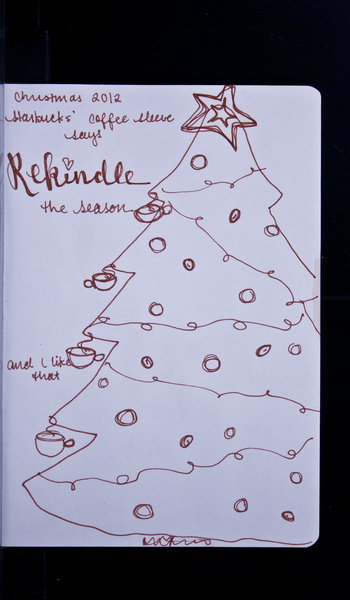 Christmas 2012
Starbucks' coffee sleeve
says
Rekindle
the season
and I like
that